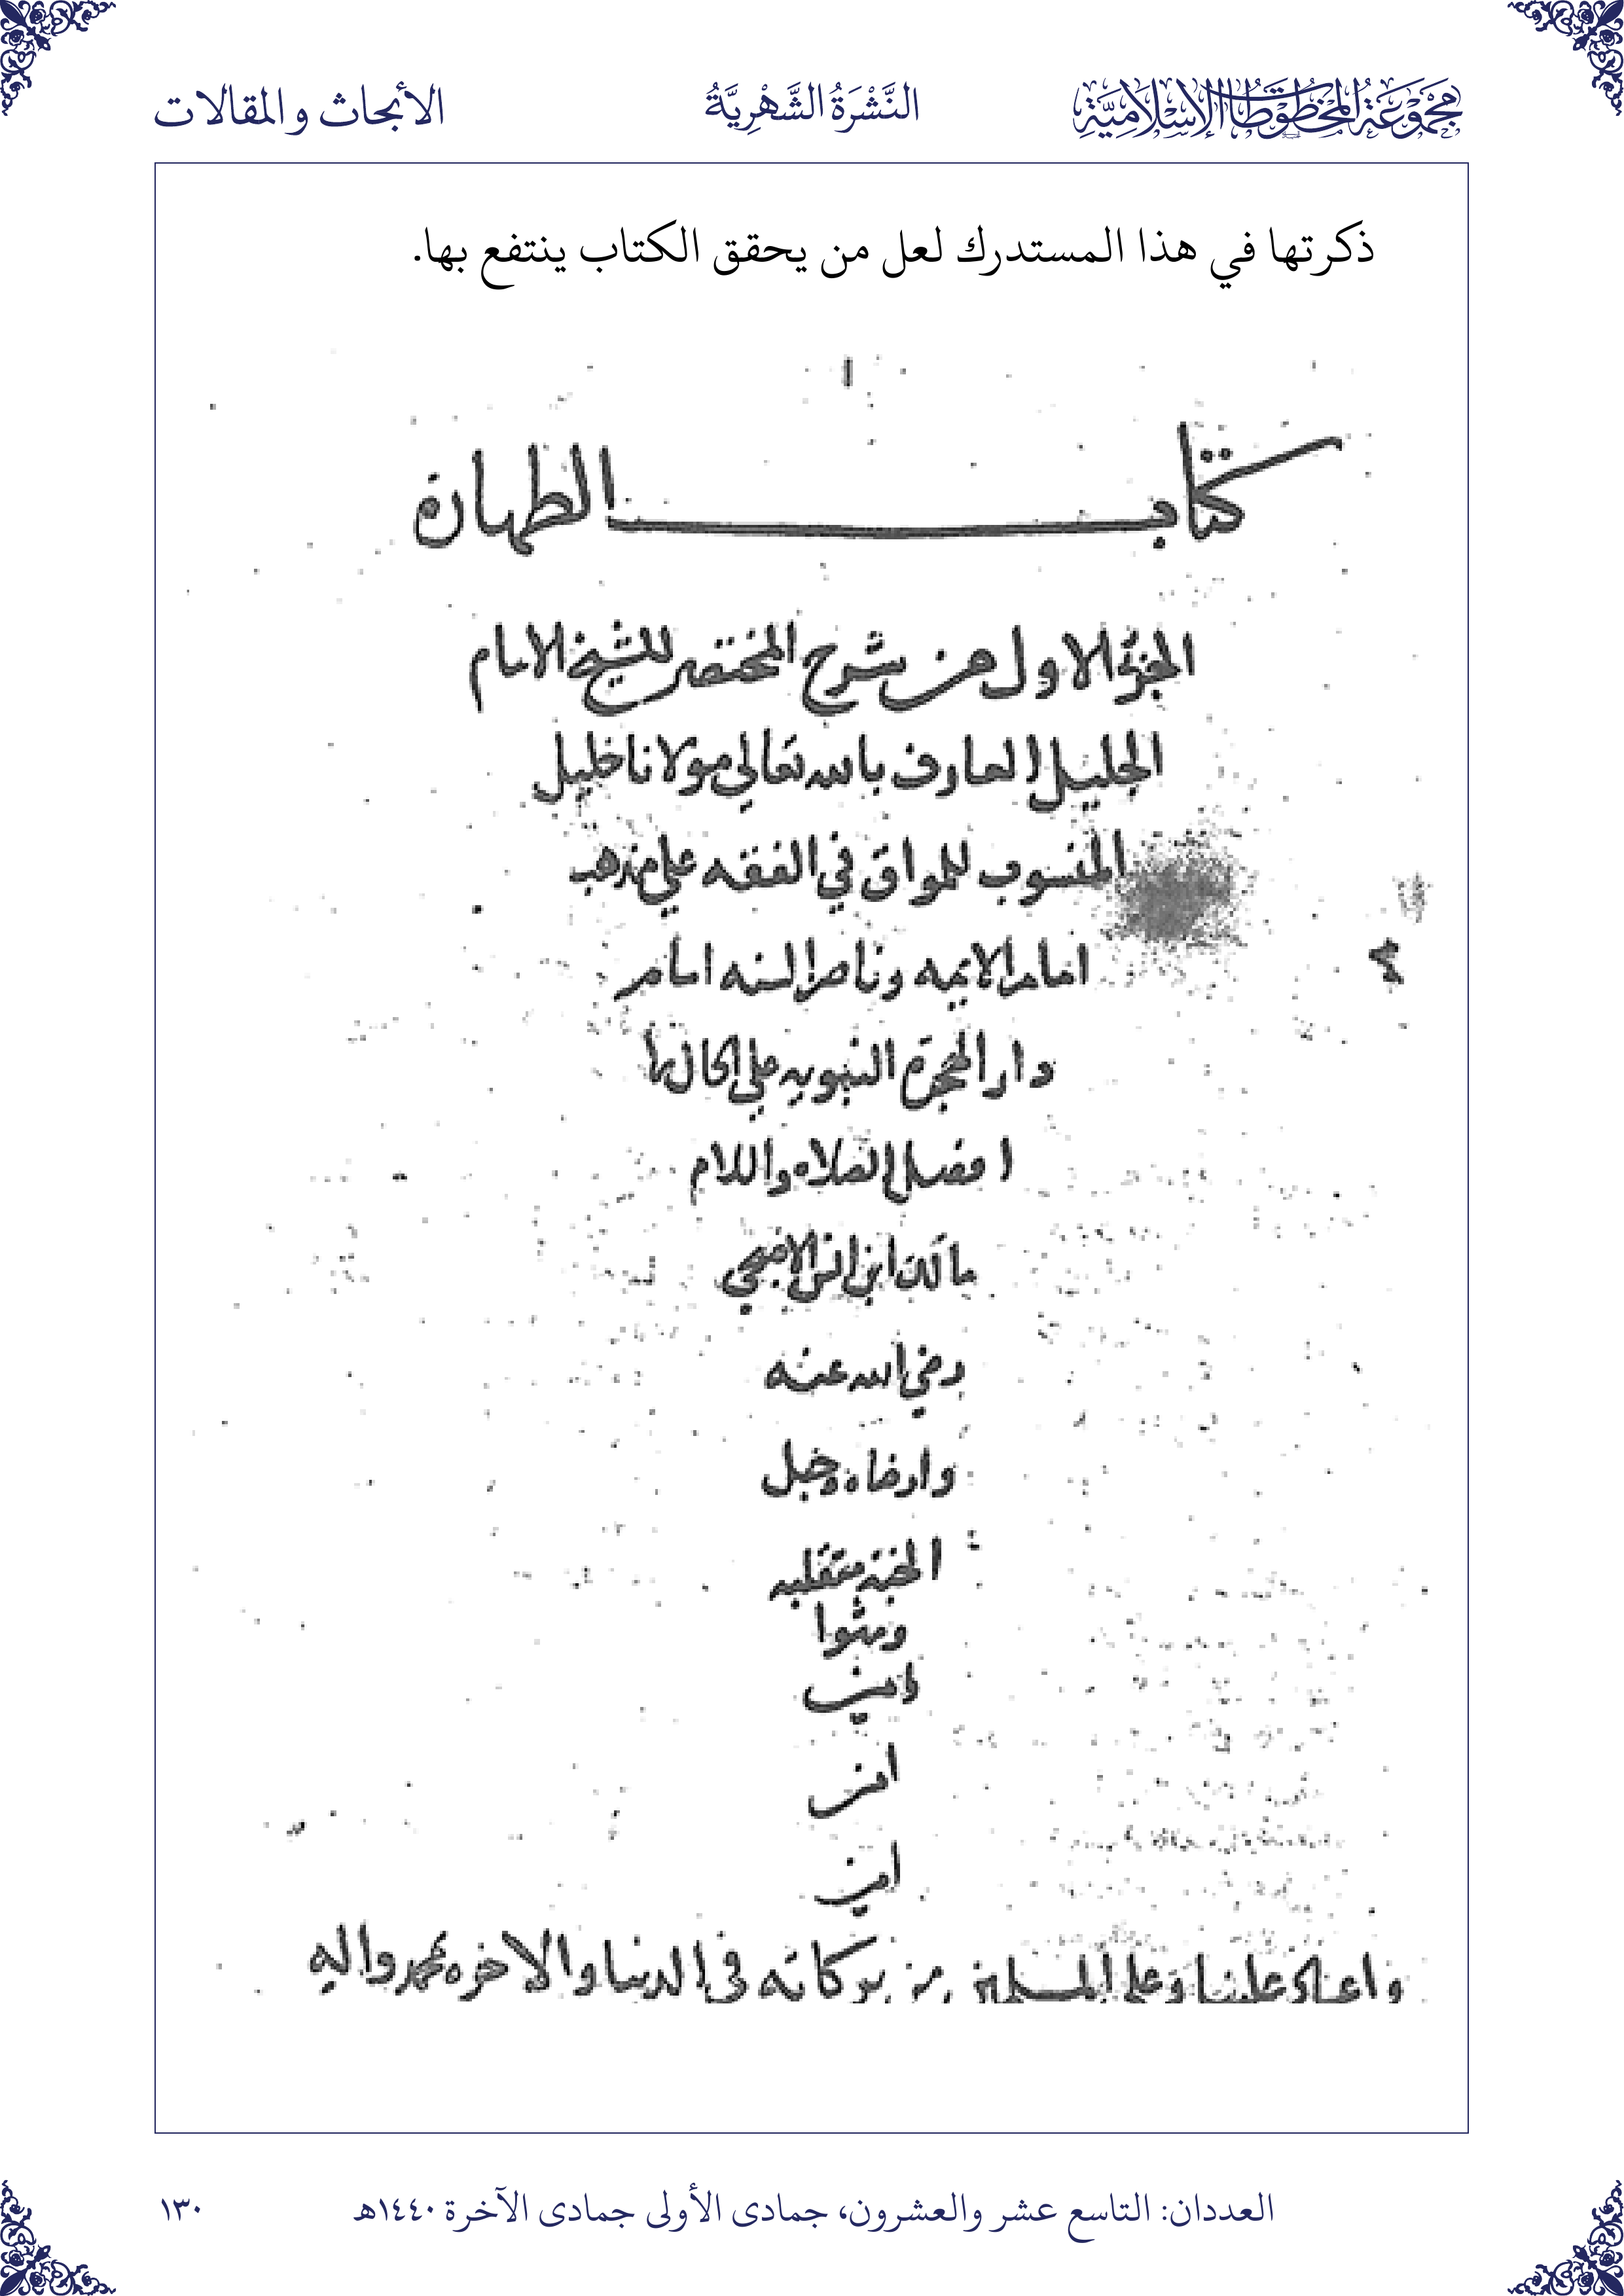 مجموعة المخطوطات الإسلامية
النَّشْرَةُ الشَّهْرِيَّةُ
الأبحاث والمقالات
ذكرتها في هذا المستدرك لعل من يحقق الكتاب ينتفع بها.
كتاب الطهارة
الجزؤ الاول من شرح المختصر للشيخ الامام
الجليل العارف بالله تعالي مولانا خليل
المنسوب للمواق في الفقه علي مذهب
امام الايمه وناصر السنه امام
دار الهجرة النبويه علي
افضل الصلاه والسلام
مالك ابن انس الاصبحي
رضي الله عنه
وارضاه وجعل
الجنة متقلبه
ومثوا
امين
امين
واعاد علينا وعلي المسلمين من بركاته في الدنيا والاخره بمحمد واله
العددان: التاسع عشر والعشرون، جمادى الأولى جمادى الآخرة ١٤٤٠هـ
١٣٠